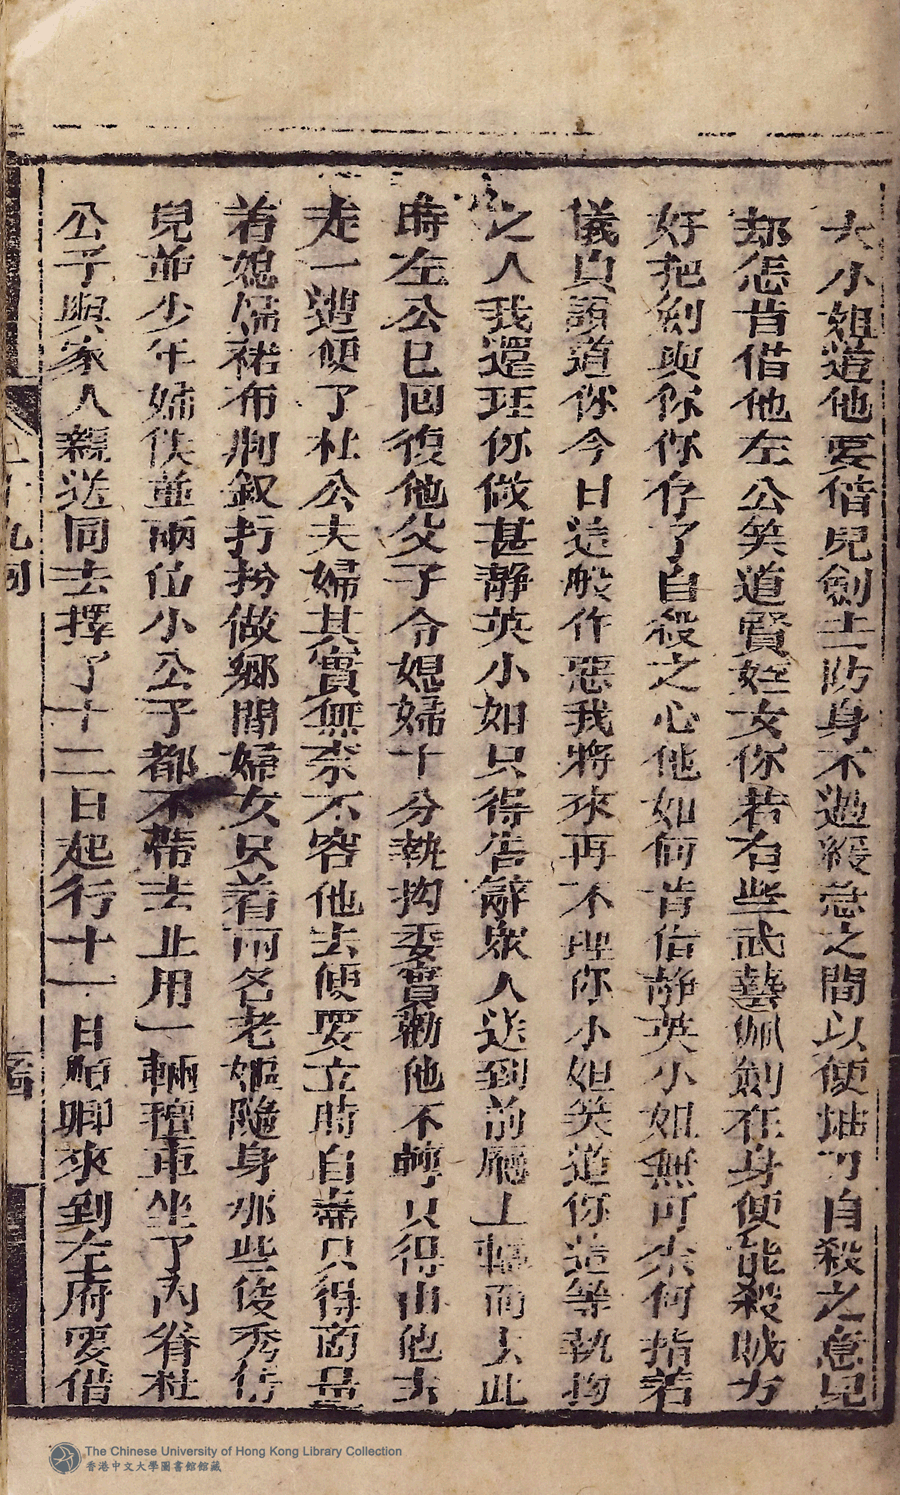 大小姐道他要借兒劍去防身不過緩急之間以便抽刀自殺之意兄
却怎肯借他左公笑道賢姪女你若有些武藝佩劍在身便能殺賊方
好把劍與你你存了自殺之心他如何肯借靜英小姐無可奈何指若
儀貞說道你今日這般作惡我將來再不理你小姐笑道你這等執拘
之人我還理你做甚靜英小姐只得告辭眾人送到前廳上轎而去此
時左公已回復他父子令媳婦十分執拘委實勸他不轉只得由他去
走一遭便了杜公夫婦其實無奈不容他去便要立時自盡只得商量
着媳婦裙布荆釵打扮做鄉間婦女只着兩名老嫗隨身那些俊秀侍
兒並少年婦佚並兩位小公子都不帶去止用一輛氊車坐了內眷杜
公子與家人親送同去擇了十二日起行十一日順卿來到左府要借
九回
The Chinese University of Hong Kong Library Collection
香港中文大學圖書館館藏